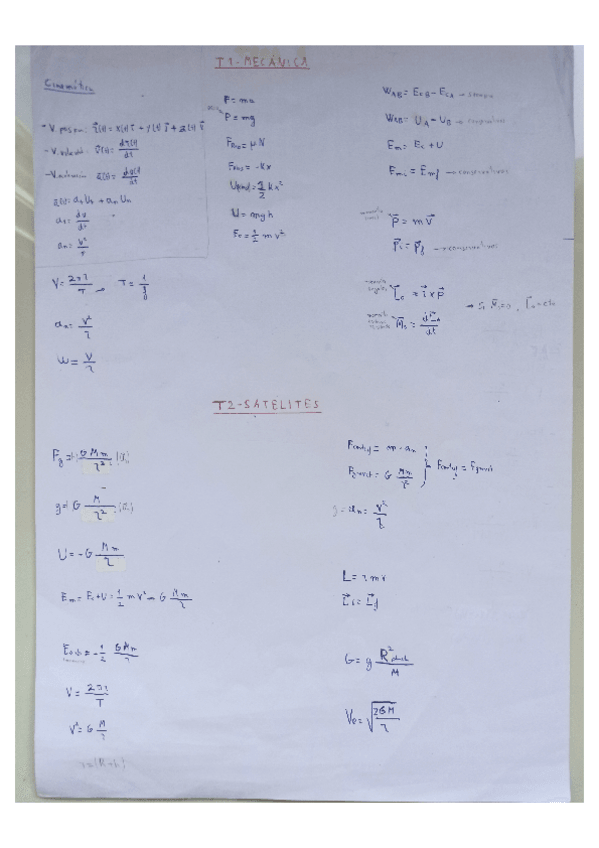 T1-MECÁNICA
Cinemática
- V. posición: r⃗(t) = x(t) i⃗ + y(t) j⃗ + z(t) k⃗
- V. velocidad: v⃗(t) = dr(t)/dt
- V. aceleración: a(t) = dv(t)/dt
a(t) = at Ut + an Un
at = dv/dt
an = v²/r
V = 2πr/T → T = 1/f
an = v²/r
W = V/r
F = ma
P = mg
Froz = μ·N
= -Kx
= 1/2 Kx²
U = mgh
Ec = 1/2 m v²
WAB = EcB - EcA →
WAB = UA - UB → conservativas
Em = Ec + U
Emi = Emf → conservativas
P⃗ = m V⃗
P⃗i = P⃗f → conservativas
momento angular L⃗o = r⃗ × P⃗
M⃗o = dL⃗o/dt
→ Si M⃗o = 0, L⃗o = cte
T2-SATELITES
Fg = G Mm/r²
g = G M/r²
U = -G Mm/r
Em = Ec + U = 1/2 m v² - G Mm/r
= -1/2 GMm/r
V = 2πr/T
V² = G M/r
Fcentrif = m · an
Fgravit = G Mm/r²
Fcentrif = Fgravit
g = an = v²/r
L = r m v
L⃗i = L⃗f
G = g R² planet/M
Ve = √2GM/r